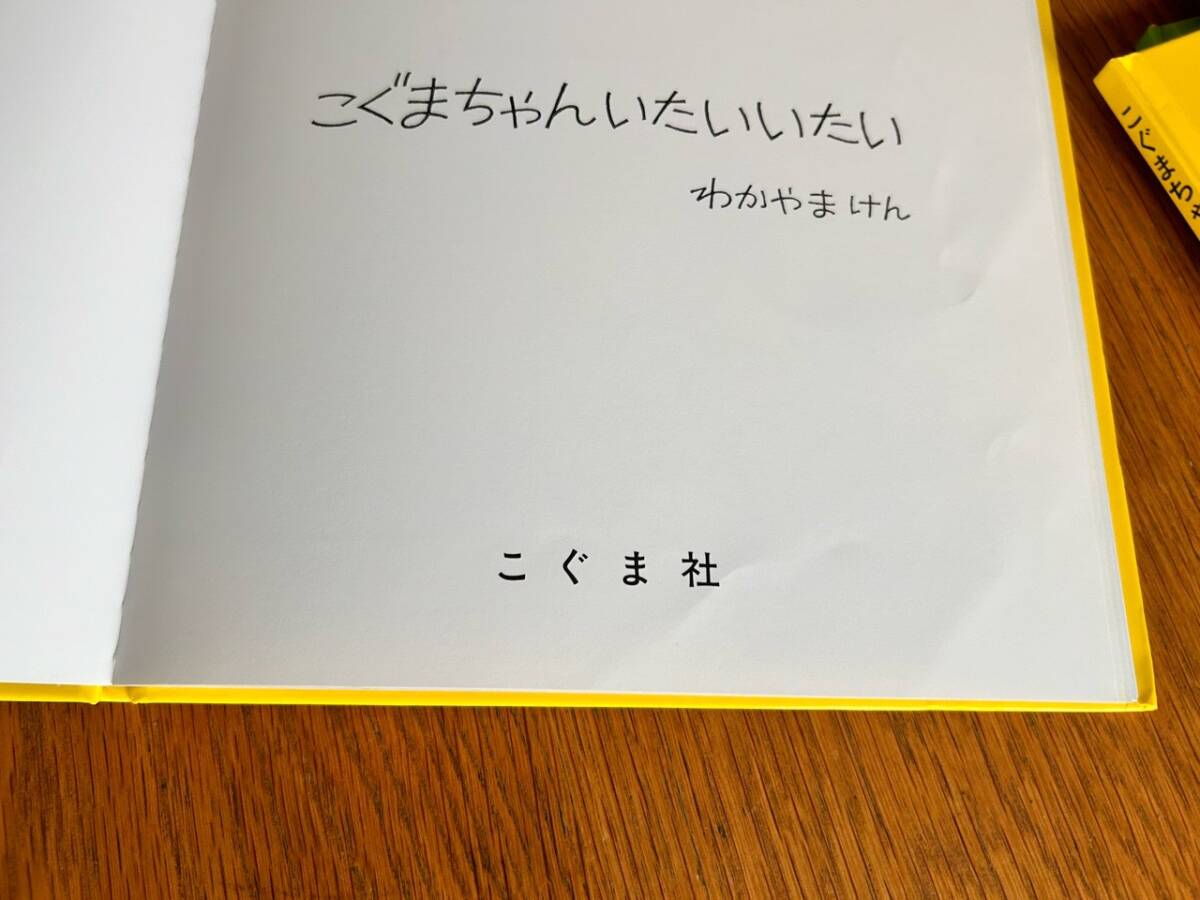 こぐまちゃんいたいいたい
わかやまけん
こぐま社
こぐまちゃ